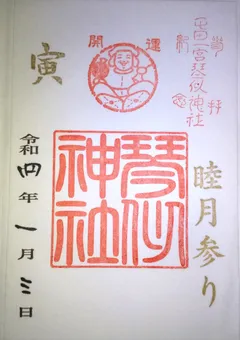 琴似神社
睦月参り
開運
琴似
神社
寅
令和四年一月三日